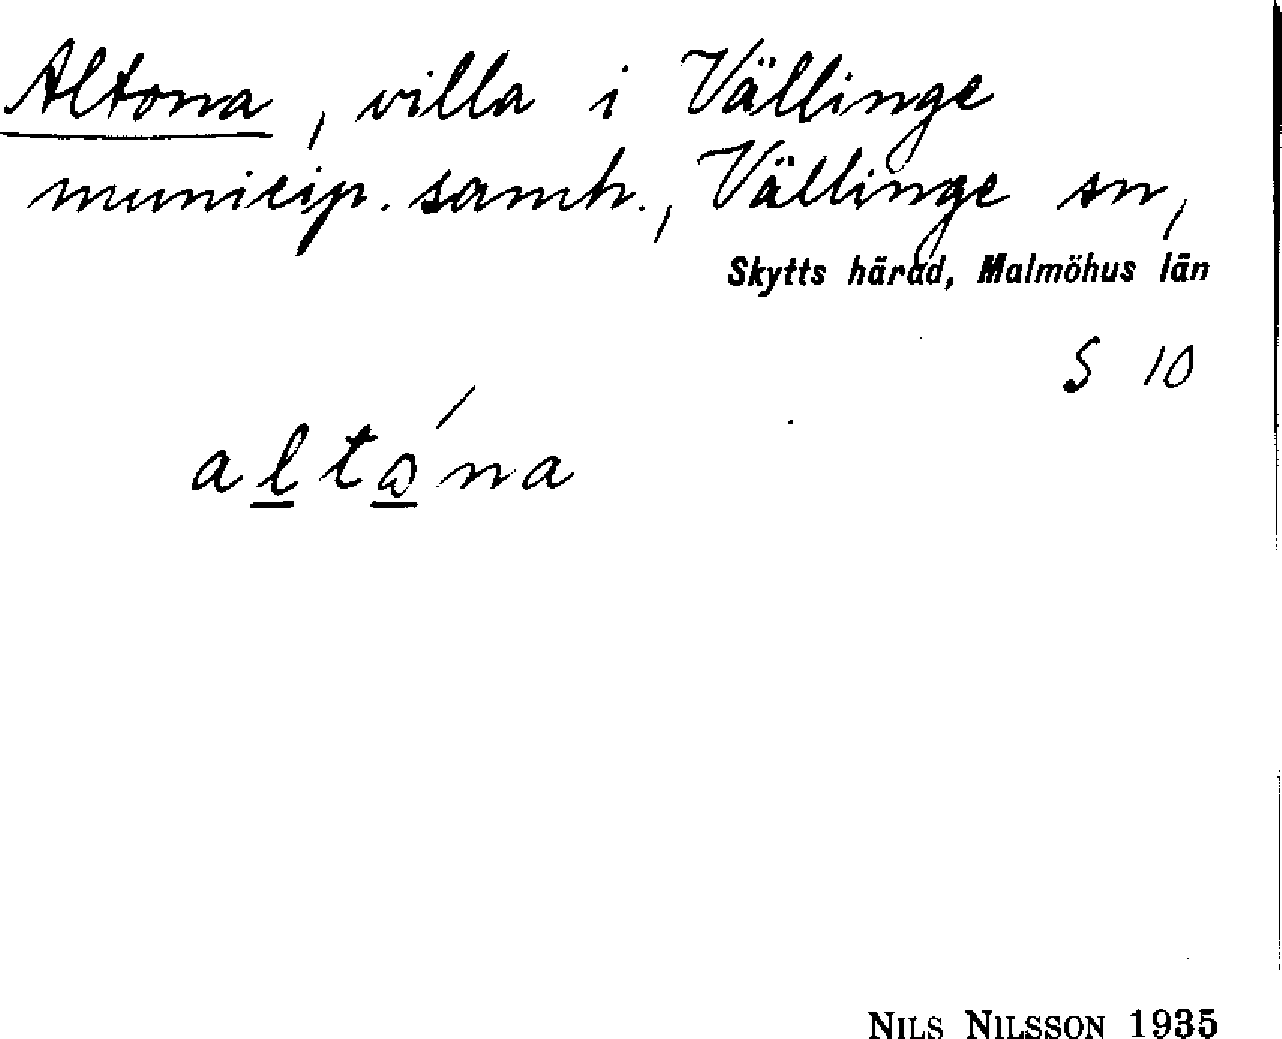 Altona, villa i Vällinge
municip. samh., Vällinge sn,
Skytts härad, Malmöhus län
S 10
altώna
NILS NILSSON 1935